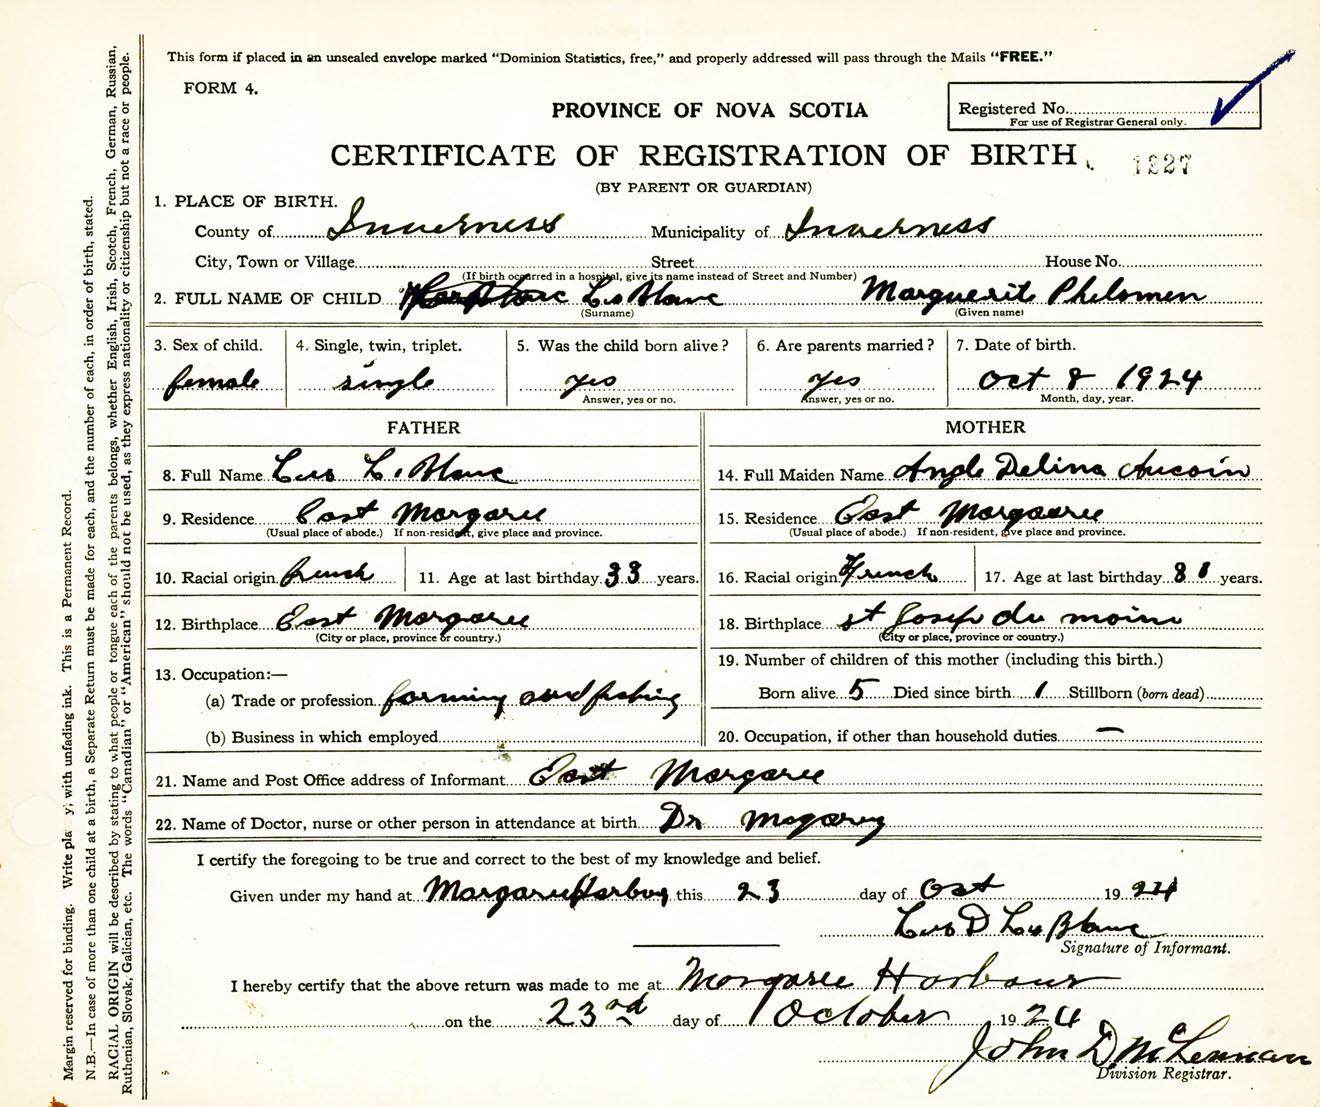 This form if placed in an unsealed envelope marked "Dominion Statistics, free," and properly addressed will pass through the Mails "FREE."
FORM 4.
PROVINCE OF NOVA SCOTIA
Registered No.
For use of Registrar General only.
CERTIFICATE OF REGISTRATION OF BIRTH
1227
(BY PARENT OR GUARDIAN)
1. PLACE OF BIRTH.
County of Inverness Municipality of Inverness
City, Town or Village Street House No.
(If birth occurred in a hospital, give its name instead of Street and Number)
2. FULL NAME OF CHILD Le Blanc Marguerite Philomen
(Surname) (Given name)
3. Sex of child. 4. Single, twin, triplet. 5. Was the child born alive? 6. Are parents married? 7. Date of birth.
female single yes yes Oct 8 1924
Answer, yes or no. Answer, yes or no. Month, day, year.
FATHER MOTHER
8. Full Name Leo L. Blanc 14. Full Maiden Name Angle Delina Aucoin
9. Residence East Margaree 15. Residence East Margaree
(Usual place of abode.) If non-resident, give place and province. (Usual place of abode.) If non-resident, give place and province.
10. Racial origin french 11. Age at last birthday 33 years. 16. Racial origin French 17. Age at last birthday years.
12. Birthplace East Margaree 18. Birthplace st Josep du moine
(City or place, province or country.) (City or place, province or country.)
13. Occupation:— 19. Number of children of this mother (including this birth.)
(a) Trade or profession farming and fishing Born alive 5 Died since birth 1 Stillborn (born dead)
(b) Business in which employed 20. Occupation, if other than household duties —
21. Name and Post Office address of Informant East Margaree
22. Name of Doctor, nurse or other person in attendance at birth Dr
I certify the foregoing to be true and correct to the best of my knowledge and belief.
Given under my hand at Margaree Harbou this 23 day of Oct 1924
Leo D Le Blanc
Signature of Informant.
I hereby certify that the above return was made to me at Margaree Harbour
on the 23rd day of October 1924
John D McLennan
Division Registrar.
Margin reserved for binding. Write pla y, with unfading ink. This is a Permanent Record.
N.B.—In case of more than one child at a birth, a Separate Return must be made for each, and the number of each, in order of birth, stated.
RACIAL ORIGIN will be described by stating to what people or tongue each of the parents belongs, whether English, Irish, Scotch, French, German, Russian,
Ruthenian, Slovak, Galician, etc. The words "Canadian" or "American" should not be used, as they express nationality or citizenship but not a race or people.